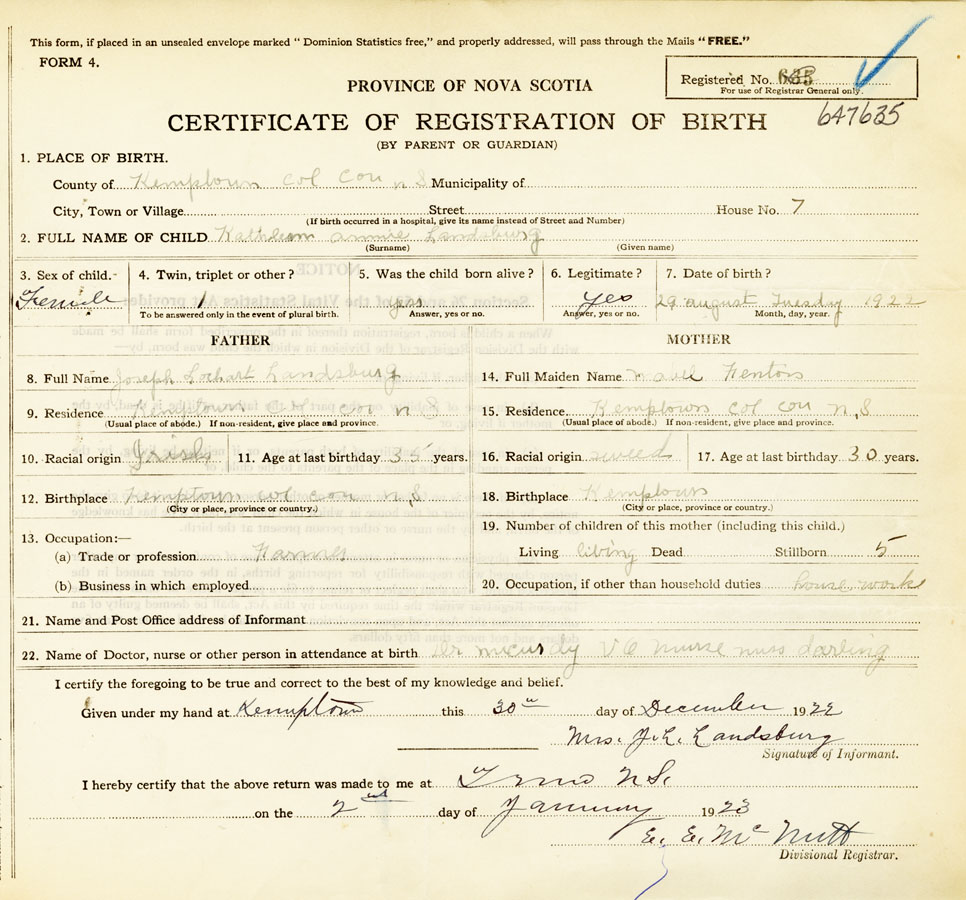 This form, if placed in an unsealed envelope marked “ Dominion Statistics free,” and properly addressed, will pass through the Mails “ FREE.”
FORM 4.
Registered No. 635
For use of Registrar General only.
647635
PROVINCE OF NOVA SCOTIA
CERTIFICATE OF REGISTRATION OF BIRTH
(BY PARENT OR GUARDIAN)
1. PLACE OF BIRTH.
County of Kemptown Col Cou n S Municipality of
City, Town or Village Street House No. 7
(If birth occurred in a hospital, give its name instead of Street and Number)
2. FULL NAME OF CHILD Kathleen annie Landsburg
(Surname) (Given name)
3. Sex of child.- 4. Twin, triplet or other? 5. Was the child born alive? 6. Legitimate? 7. Date of birth?
Female yess yes 29 august Tuesday 1922
To be answered only in the event of plural birth. Answer, yes or no. Answer, yes or no. Month, day, year.
FATHER MOTHER
8. Full Name Joseph Lochart Landsburg 14. Full Maiden Name mabell Fenton
9. Residence Kemptown Col cou n S 15. Residence. Kemptown col cou n,S
(Usual place of abode.) If non-resident, give place and province. (Usual place of abode.) If non-resident, give place and province.
10. Racial origin Irish 11. Age at last birthday 35 years. 16. Racial origin sweed 17. Age at last birthday 30 years.
12. Birthplace Kemptown col cou n,S 18. Birthplace Kemptown
(City or place, province or country.) (City or place, province or country.)
19. Number of children of this mother (including this child.)
13. Occupation:—
(a) Trade or profession Farmer Living living Dead Stillborn 5
(b) Business in which employed 20. Occupation, if other than household duties house worke
21. Name and Post Office address of Informant
22. Name of Doctor, nurse or other person in attendance at birth Dr mcurdy nurse miss darling
I certify the foregoing to be true and correct to the best of my knowledge and belief.
Given under my hand at Kemptown this 30th day of December 1922
Mrs. J.L. Landsburg
Signature of Informant.
I hereby certify that the above return was made to me at Truro N.S.
on the 2nd day of January 1923
E. E. McNutt
Divisional Registrar.